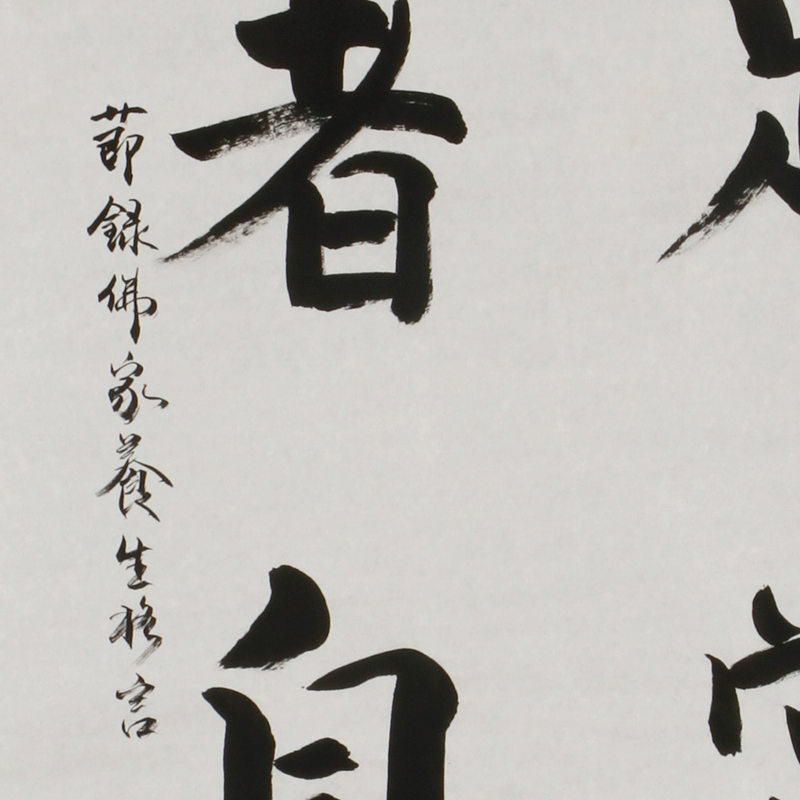 者自
節錄佛家養生格言